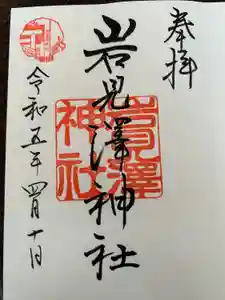 奉拝
岩見澤神社
令和五年四月十日
岩見澤
神社